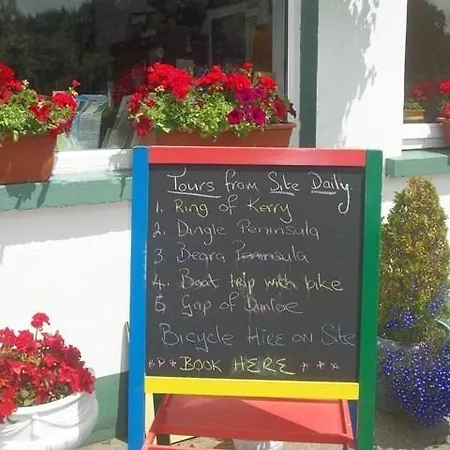 Tours from Site Daily.
1. Ring of Kerry
2. Dingle Peninsula
3. Beara Peninsula
4. Boat trip with bike
5 Gap of Dunloe
Bicycle Hire on Site
* * * BOOK HERE * * *